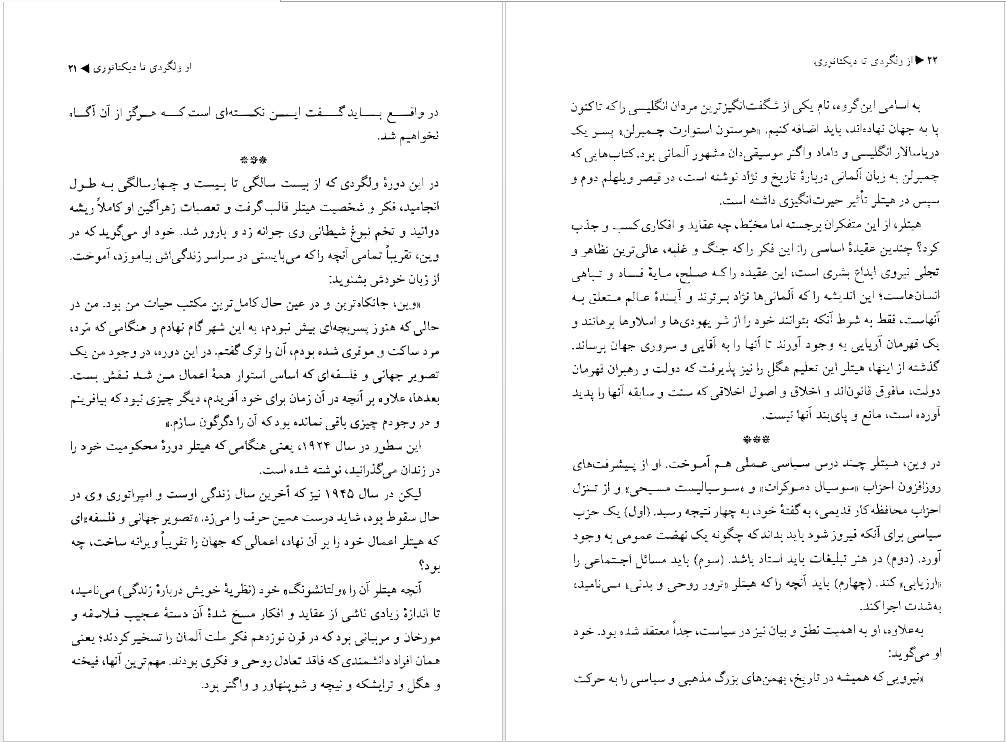 او ولگردی تا دیکتاتوری ◀ ۲۱
در واقع باید گفت این نکته‌ای است که هرگز از آن آگاه
نخواهیم شد.
***
در این دورهٔ ولگردی که از بیست سالگی تا بیست و چهارسالگی به طول
انجامید، فکر و شخصیت هیتلر قالب گرفت و تعصبات زهرآگین او کاملاً ریشه
دوانید و تخم نبوغ شیطانی وی جوانه زد و بارور شد. خود او می‌گوید که در
وین، تقریباً تمامی آنچه را که می‌بایستی در سراسر زندگی‌اش بیاموزد، آموخت.
از زبان خودش بشنوید:
«وین، جانکاه‌ترین و در عین حال کامل‌ترین مکتب حیات من بود. من در
حالی که هنوز پسربچه‌ای بیش نبودم، به این شهر گام نهادم و هنگامی که مَرد،
مرد ساکت و موقری شده بودم، آن را ترک گفتم. در این دوره، در وجود من یک
تصویر جهانی و فلسفه‌ای که اساس استوار همهٔ اعمال من شد نقش بست.
بعدها، علاوه بر آنچه در آن زمان برای خود آفریدم، دیگر چیزی نبود که بیافرینم
و در وجودم چیزی باقی نمانده بود که آن را دگرگون سازم.»
این سطور در سال ۱۹۲۴، یعنی هنگامی که هیتلر دورهٔ محکومیت خود را
در زندان می‌گذرانید، نوشته شده است.
لیکن در سال ۱۹۴۵ نیز که آخرین سال زندگی اوست و امپراتوری وی در
حال سقوط بود، شاید درست همین حرف را می‌زد. «تصویر جهانی و فلسفه»ای
که هیتلر اعمال خود را بر آن نهاد، اعمالی که جهان را تقریباً ویرانه ساخت، چه
بود؟
آنچه هیتلر آن را «ولتانشونگ» خود (نظریهٔ خویش دربارهٔ زندگی) می‌نامید،
تا اندازهٔ زیادی ناشی از عقاید و افکار مسخ شدهٔ آن دستهٔ عجیب فلاسفه و
مورخان و مربیانی بود که در قرن نوزدهم فکر ملت آلمان را تسخیر کردند؛ یعنی
همان افراد دانشمندی که فاقد تعادل روحی و فکری بودند. مهم‌ترین آنها، فیخته
و هگل و ترایشکه و نیچه و شوپنهاور و واگنر بود.
۲۲ ▶ از ولگردی تا دیکتاتوری
به اسامی این گروه، نام یکی از شگفت‌انگیزترین مردان انگلیسی را که تاکنون
پا به جهان نهاده‌اند، باید اضافه کنیم. «هوستون استوارت چمبرلن» پسر یک
دریاسالار انگلیسی و داماد واگنر موسیقی‌دان مشهور آلمانی بود. کتاب‌هایی که
چمبرلن به زبان آلمانی دربارهٔ تاریخ و نژاد نوشته است، در قیصر ویلهلم دوم و
سپس در هیتلر تأثیر حیرت‌انگیزی داشته است.
هیتلر، از این متفکران برجسته اما مخبّط، چه عقاید و افکاری کسب و جذب
کرد؟ چندین عقیدهٔ اساسی را: این فکر را که جنگ و غلبه، عالی‌ترین تظاهر و
تجلی نیروی ابداع بشری است، این عقیده را که صلح، مایهٔ فساد و تباهی
انسان‌هاست؛ این اندیشه را که آلمانی‌ها نژاد برترند و آیندهٔ عالم متعلق به
آنهاست، فقط به شرط آنکه بتوانند خود را از شر یهودی‌ها و اسلاوها برهانند و
یک قهرمان آریایی به وجود آورند تا آنها را به آقایی و سروری جهان برساند.
گذشته از اینها، هیتلر این تعلیم هگل را نیز پذیرفت که دولت و رهبران قهرمان
دولت، مافوق قانون‌اند و اخلاق و اصول اخلاقی که سنت و سابقه آنها را پدید
آورده است، مانع و پای‌بند آنها نیست.
***
در وین، هیتلر چند درس سیاسی عملی هم آموخت. او از پیشرفت‌های
روزافزون احزاب «سوسیال دموکرات» و «سوسیالیست مسیحی» و از تنزل
احزاب محافظه‌کار قدیمی، به گفتهٔ خود، به چهار نتیجه رسید. (اول) یک حزب
سیاسی برای آنکه فیروز شود باید بداند که چگونه یک نهضت عمومی به وجود
آورد. (دوم) در هنر تبلیغات باید استاد باشد. (سوم) باید مسائل اجتماعی را
«ارزیابی» کند. (چهارم) باید آنچه را که هیتلر «ترور روحی و بدنی» می‌نامید،
به‌شدت اجرا کند.
به‌علاوه، او به اهمیت نطق و بیان نیز در سیاست، جداً معتقد شده بود. خود
او می‌گوید:
«نیرویی که همیشه در تاریخ، بهمن‌های بزرگ مذهبی و سیاسی را به حرکت